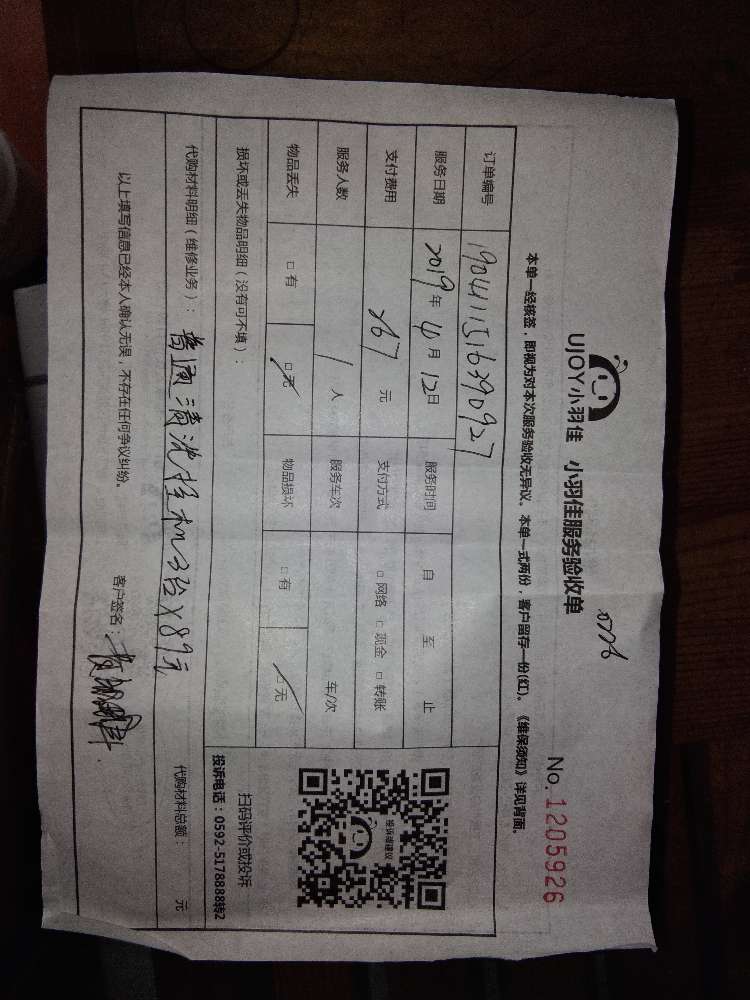 0776
UJOY小羽佳 小羽佳服务验收单
No. 1205926
本单一经核签，即视为对本次服务验收无异议。本单一式两份，客户留存一份(红)。《维保须知》详见背面。
订单编号 1904111516390927
服务日期 2019年4月12日 服务时间 自 至 止
支付费用 267 元 支付方式 □ 网络 □ 现金 □ 转账
服务人数 1 人 服务车次 车/次
物品丢失 □ 有 □ 无 物品损坏 □ 有 □ 无
投诉或建议
扫码评价或投诉
投诉电话：0592-5178888转2
损坏或丢失物品明细（没有可不填）：
代购材料明细（维修业务）：普通清洗挂机3台X89元 代购材料总额： 元
以上填写信息已经本人确认无误，不存在任何争议纠纷。 客户签名：